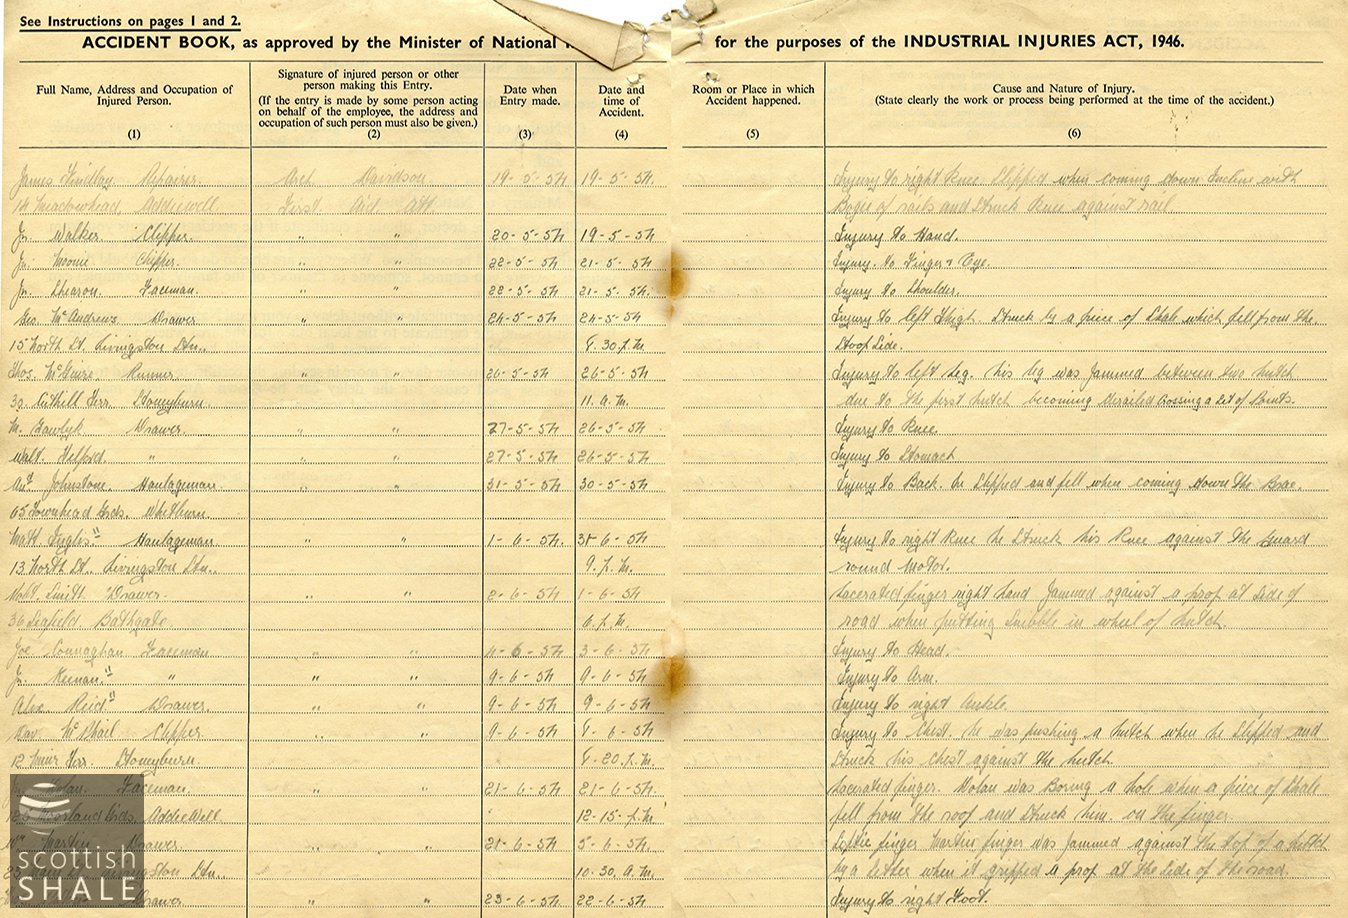 See Instructions on pages 1 and 2.
ACCIDENT BOOK, as approved by the Minister of National for the purposes of the INDUSTRIAL INJURIES ACT, 1946.
Full Name, Address and Occupation of Injured Person. (1)
Signature of injured person or other person making this Entry. (If the entry is made by some person acting on behalf of the employee, the address and occupation of such person must also be given.) (2)
Date when Entry made. (3)
Date and time of Accident. (4)
Room or Place in which Accident happened. (5)
Cause and Nature of Injury. (State clearly the work or process being performed at the time of the accident.) (6)
James Findlay Repairer Arch Davidson 19-5-54 19-5-54. Injury to right Knee Slipped when coming down Incline with
14 Meadowhead, Addiewell First Aid Att. Bogie of rails and Struck Knee against rail
Jn. Walker Clipper " " 20-5-54 19-5-54 Injury to Hand.
Jn. Moonie Clipper. " " 22-5-54 21-5-54 Injury to Finger & Eye.
Jn. Shearon Faceman. " " 22-5-54 21-5-54. Injury to Shoulder.
Geo. McAndrews Drawer " " 24-5-54 24-5-54 Injury to left Thigh Struck by a piece of Shale which fell from the
15 North St. Livingston Stn.. 8.30 p.m. Stoop Side.
Thos. McGuire Runner. " " 26-5-54 26-5-54 Injury to left Leg. his leg was Jammed between two hutch
30 Cuthill Terr. Stoneyburn 11. a.m. due to the first hutch becoming Derailed Crossing a Set of Points.
M. Drawer " " 27-5-54 26-5-54 Injury to Knee.
Walt. Telford " " " 27-5-54 26-5-54 Injury to Stomach
Johnstone. Haulageman " " 31-5-54 30-5-54 Injury to Back. he Slipped and fell when coming down the Brae.
65 Townhead Grds. Whitburn.
Matt Inglis " Haulageman " " 1-6-54. 31-6-54 Injury to right Knee he Struck his Knee against the Guard
13 North St.. Livingston Stn.. 9.p.m. round Motor.
Robt. Smith Drawer. " " 2-6-54 1-6-54 Lacerated finger right hand Jammed against a prop at Side of
36 Seafield Bathgate 6.p.m. road when putting Snibble in wheel of hutch.
Joe Connaghan Faceman " " 4-6-54 3-6-54 Injury to Head.
Jn. Keenan " " " " 9-6-54 9-6-54 Injury to Arm.
Alex. Reid " Drawer. " " 9-6-54 9-6-54 Injury to right Ankle.
Dav. McPhail Clipper " " 9-6-54 8-6-54 Injury to Chest. he was pushing a hutch when he Slipped and
12 Muir Terr. Stoneyburn. 8-20.p.m. Struck his Chest against the hutch.
Nolan. Faceman. " " 21-6-54 21-6-54 Lacerated finger. Nolan was Boring a hole when a piece of Shale
Moorland Grds. Addiewell. 12-15-p.m. fell from the roof and Struck him. on the finger.
Wm. Martin Drawer " " 21-6-54 5-6-54. Little finger Martins finger was Jammed against the top of a hutch
Main St. Livingston Stn.. 10-30. a.m. by a when it gripped a prop at the Side of the road.
Drawer " " 23-6-54 22-6-54. Injury to right Foot.
scottish
SHALE